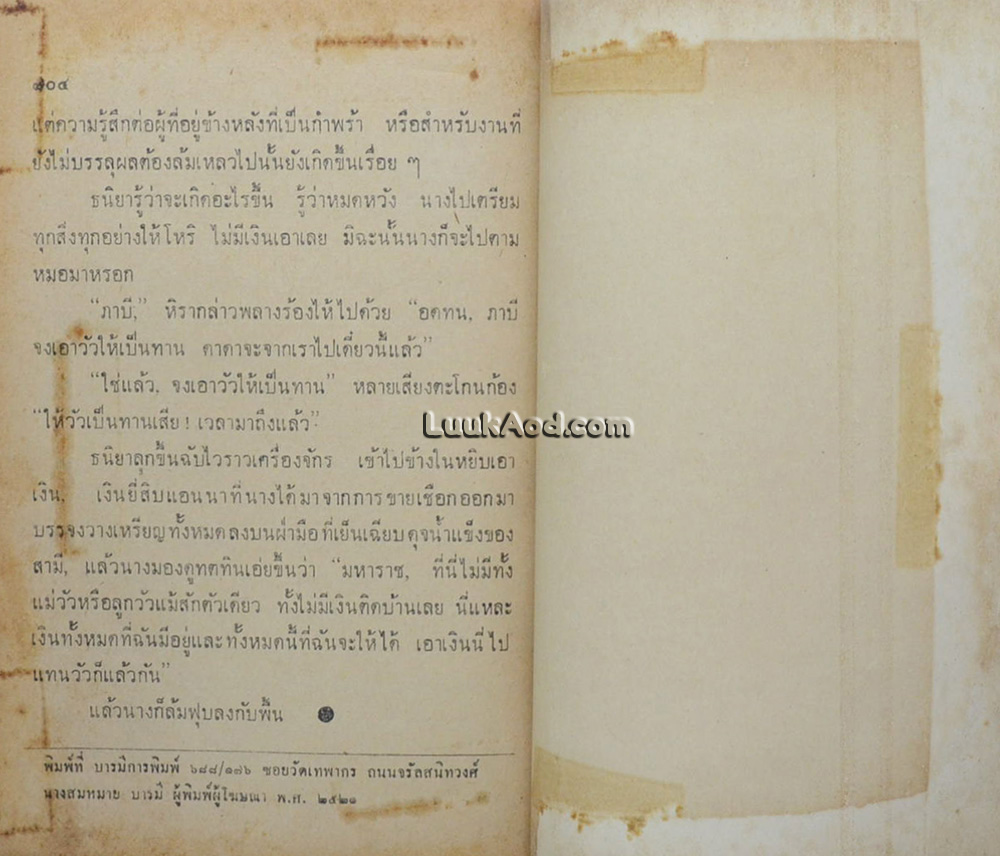 ๑๐๔
แต่ความรู้สึกต่อผู้ที่อยู่ข้างหลังที่เป็นกำพร้า หรือสำหรับงานที่
ยังไม่บรรลุผลต้องล้มเหลวไปนั้นยังเกิดขึ้นเรื่อย ๆ
ธนิยารู้ว่าจะเกิดอะไรขึ้น รู้ว่าหมดหวัง นางไปเตรียม
ทุกสิ่งทุกอย่างให้โหริ ไม่มีเงินเอาเลย มิฉะนั้นนางก็จะไปตาม
หมอมาหรอก
“ภาบี,” หิรากล่าวพลางร้องไห้ไปด้วย “อดทน, ภาบี
จงเอาวัวให้เป็นทาน ดาดาจะจากเราไปเดี๋ยวนี้แล้ว”
“ใช่แล้ว, จงเอาวัวให้เป็นทาน” หลายเสียงตะโกนก้อง
“ให้วัวเป็นทานเสีย! เวลามาถึงแล้ว”
LuukAod.com
ธนิยาลุกขึ้นฉับไวราวเครื่องจักร เข้าไปข้างในหยิบเอา
เงิน, เงินยี่สิบแอนนาที่นางได้มาจากการขายเชือกออกมา
บรรจงวางเหรียญทั้งหมดลงบนฝ่ามือที่เย็นเฉียบดุจน้ำแข็งของ
สามี, แล้วนางมองดูทตทินเอ่ยขึ้นว่า “มหาราช, ที่นี่ไม่มีทั้ง
แม่วัวหรือลูกวัวแม้สักตัวเดียว ทั้งไม่มีเงินติดบ้านเลย นี่แหละ
เงินทั้งหมดที่ฉันมีอยู่และทั้งหมดนี้ที่ฉันจะให้ได้ เอาเงินนี่ไป
แทนวัวก็แล้วกัน”
แล้วนางก็ล้มฟุบลงกับพื้น
พิมพ์ที่ บารมีการพิมพ์ ๖๘๘/๑๗๖ ซอยวัดเทพากร ถนนจรัลสนิทวงศ์
นางสมหมาย บารมี ผู้พิมพ์ผู้โฆษณา พ.ศ. ๒๕๒๑